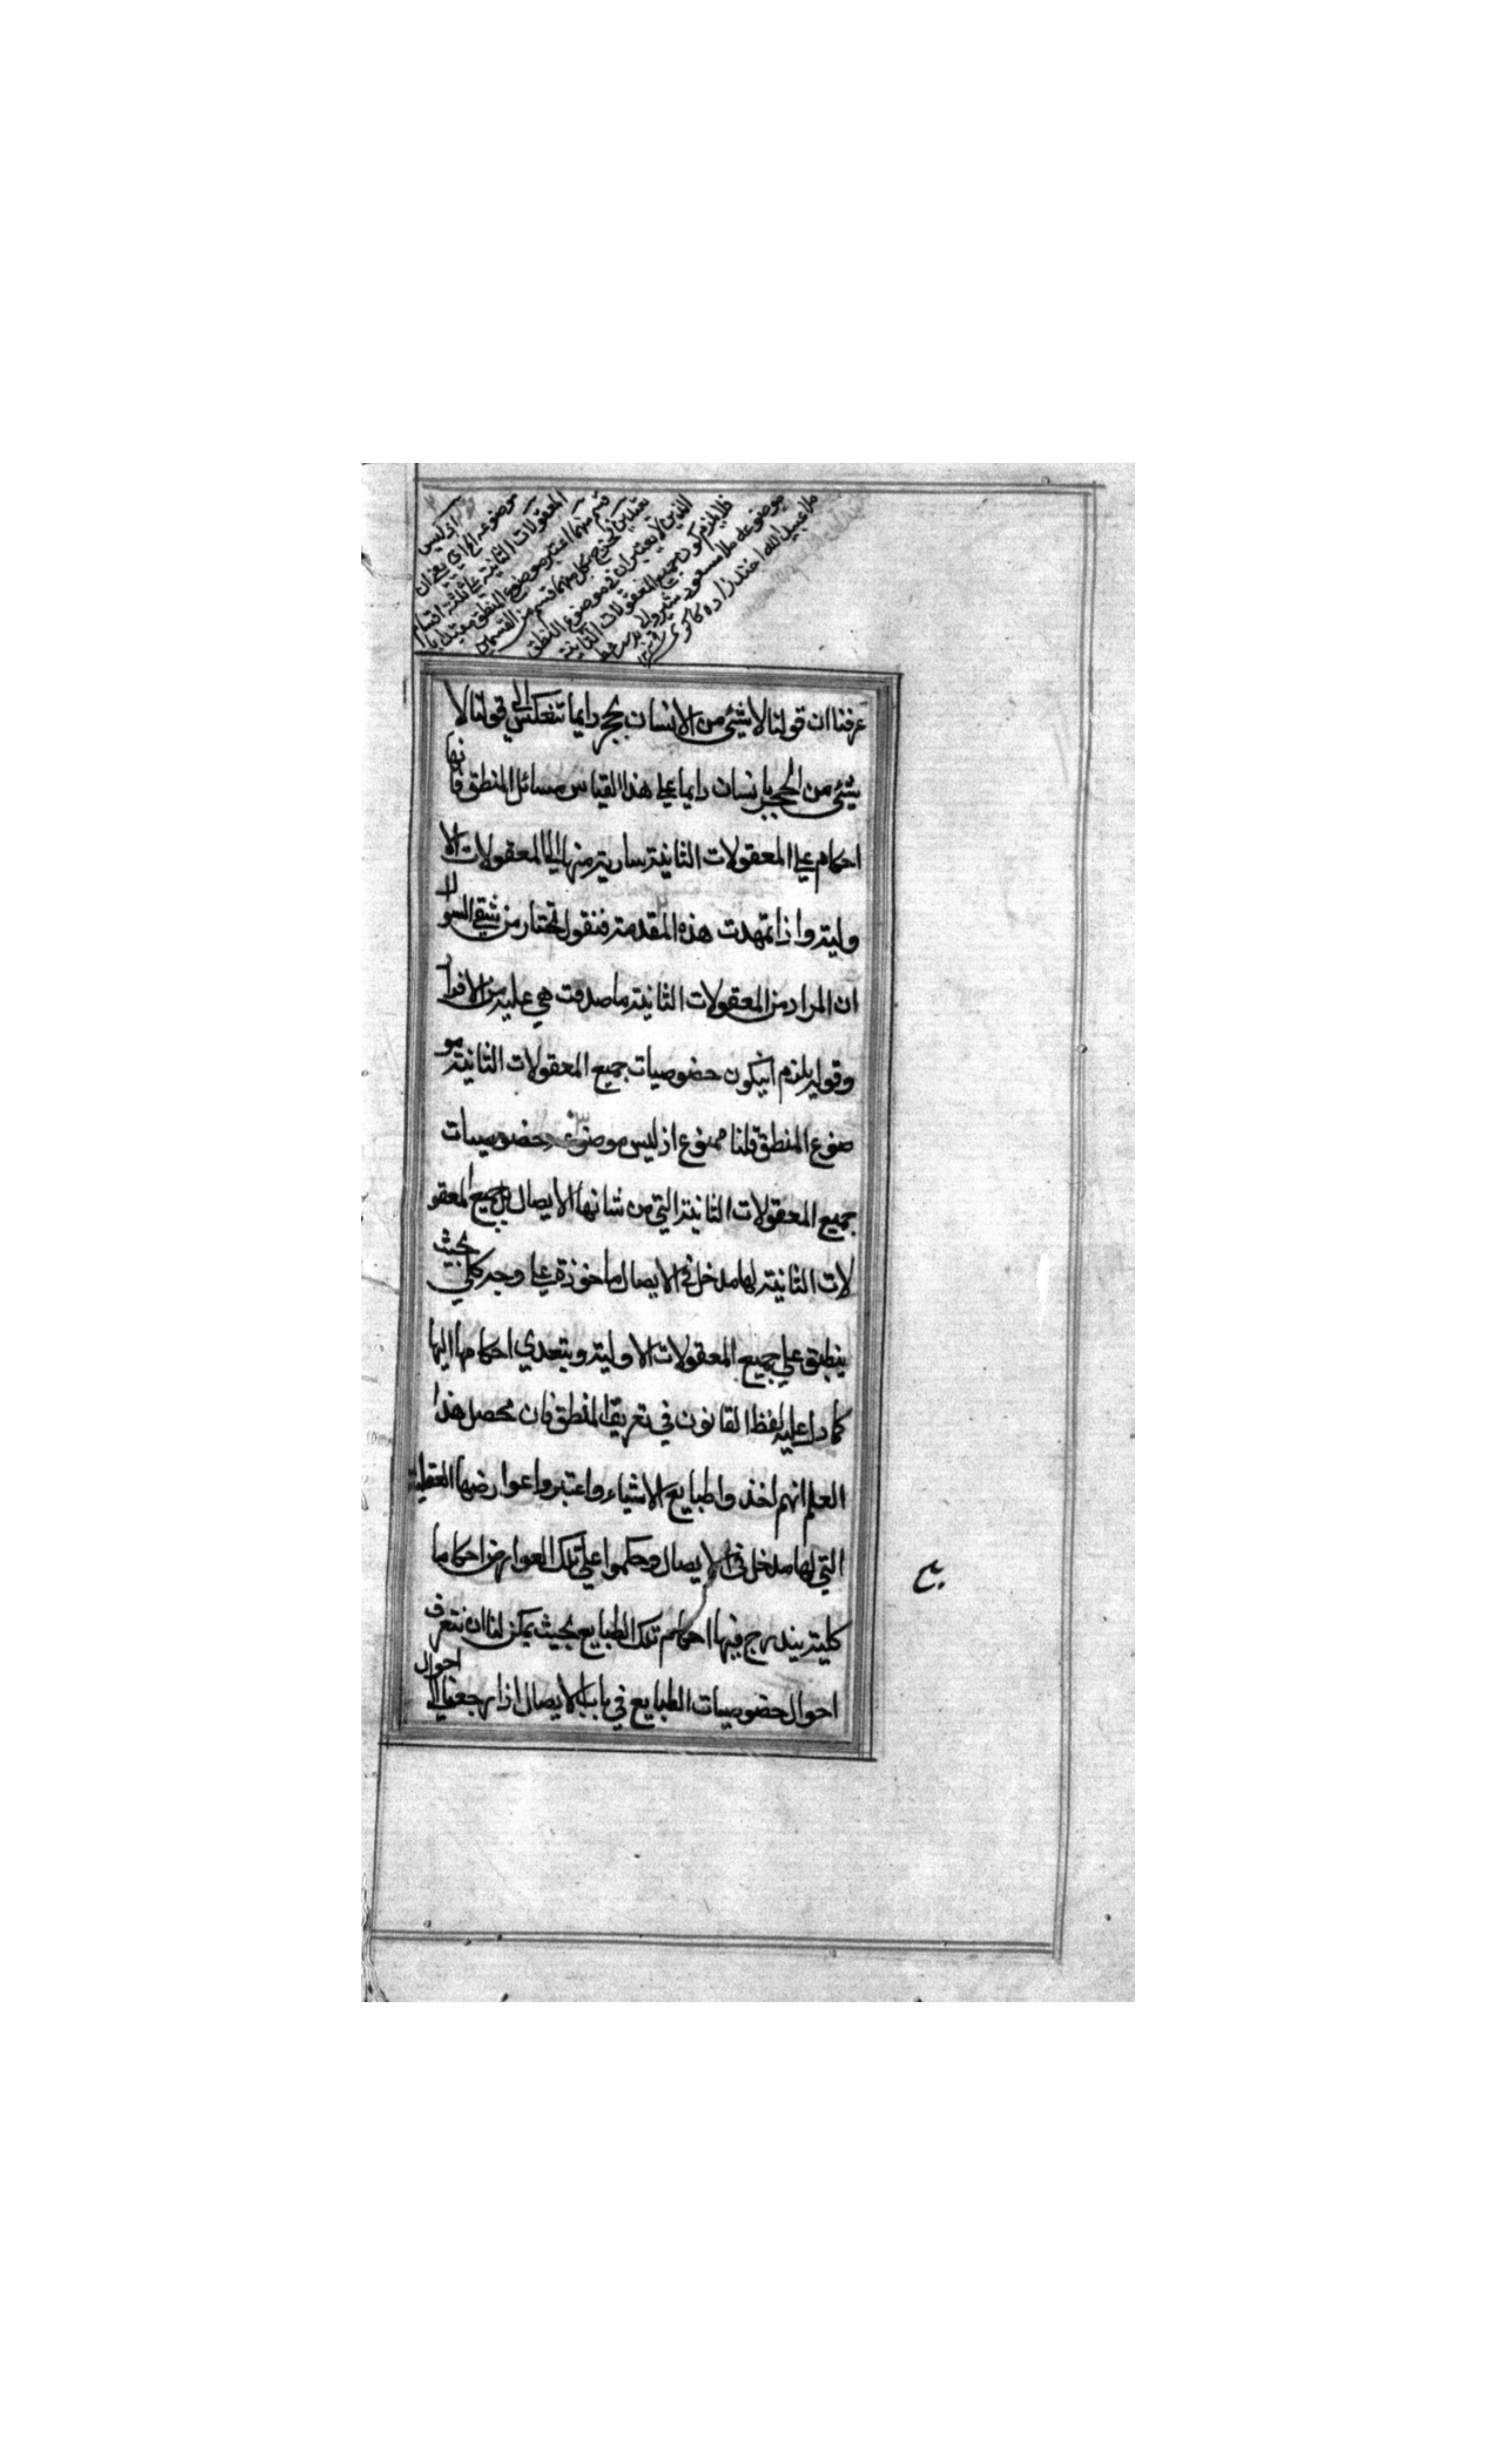 اي ليس
موضوعه الخ اي يعني ان
المعقولات الثانية علي ثلثة اقسام
قسم منها اعتبر موضوع المنطق مقيدا با
يخرج بكل منهما قسم من القسمين
الذين لا يعتبران في موضوع المنطق
فلا يلزم كون جميع المعقولات الثانية
موضوعه ملا مسعود شيرولا
ملا عبيد الله اخندزاده كاكوي
عرفنا ان قولنا لا شيئ من الانسان بحجر دايما تنعكس الي قولنا لا
شيئ من الحجر بانسان دايما علي هذا القياس مسائل المنطق فانها
احكام علي المعقولات الثانية سارية منها الي المعقولات الا
ولية واذا تمهدت هذه المقدمة فنقول نختار من شقي السوال
ان المراد من المعقولات الثانية ما صدقت هي عليه من الافراد
وقوله يلزم انيكون خضوصيات جميع المعقولات الثانية مو
ضوع المنطق قلنا ممنوع اذ ليس موضوعه خضوصيات
جميع المعقولات الثانية التي من شانها الايصال بل جميع المعقو
لات الثانية لها مدخل في الايصال ماخوذة علي وجه كلي بحيث
ينطبق علي جميع المعقولات الاولية ويتعدي احكامها اليها
كما دل عليه لفظ القانون في تعريف المنطق فان محصل هذا
العلم انهم اخذوا طبايع الاشياء واعتبروا عوارضها العقلية
التي لها مدخل في الايصال وحكموا علي تلك العوارض احكاما
كلية يندرج فيها احكام تلك الطبايع بحيث يمكن لنا ان نتعرف
احوال خضوصيات الطبايع في باب الايصال اذا رجعنا الي احوال